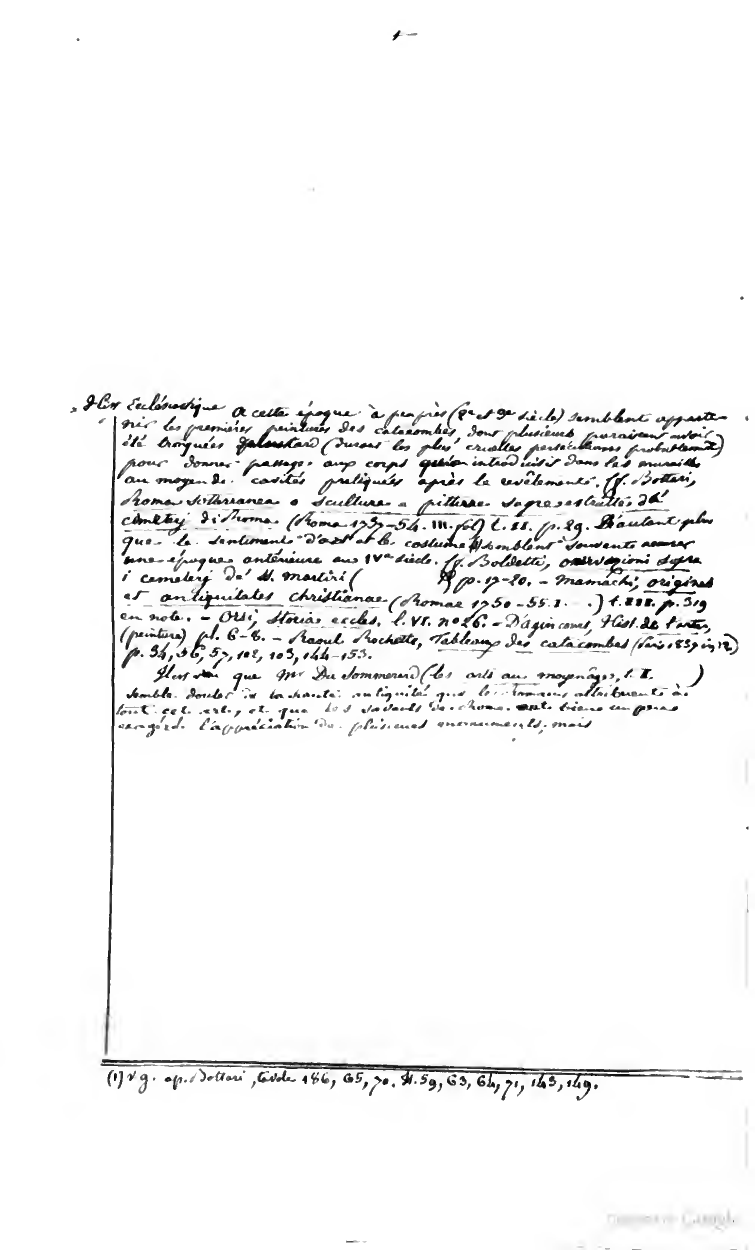 Hist Ecclésiastique A cette époque à peu près (2e et 3e siècle) semblent apparte-
nir les premières peintures des catacombes, dont plusieurs paraissent avoir
été tronquées plus tard (durant les plus cruelles persécutions probablement)
pour donner passage aux corps qu'on introduisit dans les murailles
au moyen de cavités pratiquées après le revêtement. Cf. Bottari,
Roma sotterranea o sculture e pitture sagre estratte dai
cimiterj di Roma (Roma 1737-54. III. fol) t. II. p. 29. D'autant plus
que le sentiment d'art et les costumes semblent souvent
une époque antérieure au IVe siècle. Cf. Boldetti, osservazioni sopra
i cemeterj de' SS. martiri ( ) p. 17-20. - Mamachi, origines
et antiquitates christianae (Romae 1750-55. ) t. III. p. 319
en note. - Orsi, Storia eccles. l. VI. no 26. - D'agincourt, Hist. de l'art,
(peinture) pl. 6-8. - Raoul Rochette, Tableau des catacombes (Paris 1837 in 12)
p. 34, 56, 57, 102, 103, 144-153.
que Mr Du Sommerard (les arts au moyen âge, t. II. )
semble douter de la haute antiquité que les romains attribuent à
tout cet art, et que les savants de Rome ont bien un peu
exagéré l'appréciation de plusieurs monuments, mais
(1) V g. ap. Bottari, tavole 186, 65, 70. 59, 63, 64, 71, 143, 149.
Google